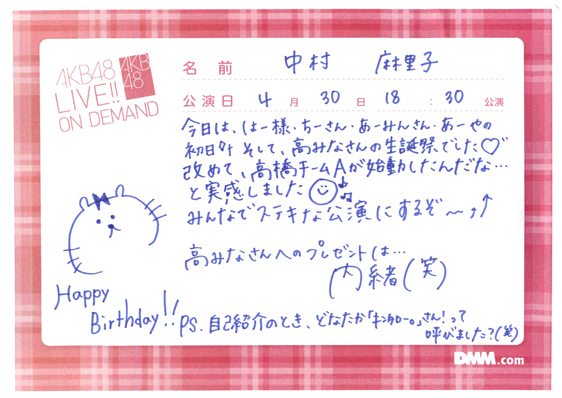 AKB48
LIVE!!
ON DEMAND
AKB
48
名 前 中村 麻里子
公演日 4 月 30 日 18 : 30 公演
今日は、はー様・ちーさん・あーみんさん・あーやの
初日!! そして、高みなさんの生誕祭でした♡
改めて、高橋チームAが始動したんだな…
と実感しました
みんなでステキな公演にするぞ〜↗↑
高みなさんへのプレゼントは…
内緒(笑)
Happy
Birthday!!
PS. 自己紹介のとき、どなたか「キンタロー。さん!」って
呼びました?(笑)
DMM.com